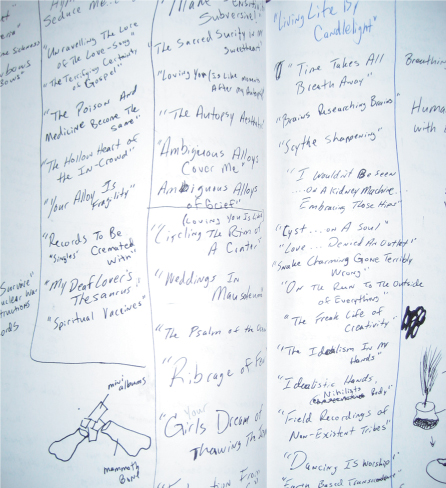 Seduce Me...
"Unravelling The Lore
of The Love-Song"
"The Terrifying Certainty
of Gospel"
"The Poison And
Medicine Become The
Same"
"The Hollow Heart of
the In-Crowd"
"Your Alloy Is
Fragility"
"Records To Be
"Singles" Cremated
With"
"My Deaf Lover's
Thesaurus"
"Spiritual Vaccines"
mini
albums
mammoth
Band
Subversive"
"The Sacred Surity in
Sweetheart"
"Loving You Is Like
After My Autopsy"
"The Autopsy
"Ambiguous Alloys
Cover Me"
Ambiguous Alloys
of Grief"
(Loving You Is Like
"Circling The Rim of
A Crater"
"Weddings In
Mausoleum"
"The Psalm of the
"Ribcage of
Your
"Girls Dream of
Thawing The
From
"Living Life By
Candlelight"
"Time Takes All
Breath Away"
"Brains Researching Brains"
"Scythe Sharpening"
"I Wouldn't Be Seen
...On A Kidney Machine...
Embracing Those Hips"
"Cyst... on A Soul"
"Love... Denied An Outlet"
"Snake Charming Gone Terribly
Wrong"
"On The Run To The Outside
of Everything"
"The Freak Life of
Creativity"
"The Idealism In My
Hands"
"Idealistic Hands,
Nihilistic
Body"
"Field Recordings of
Non-Existent Tribes"
"Dancing Is Worship"
Based
Breathing
Human
with
Survive
Nuclear War